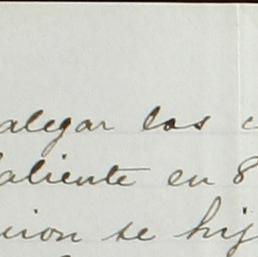 alegar los
aliente en 8
se hij